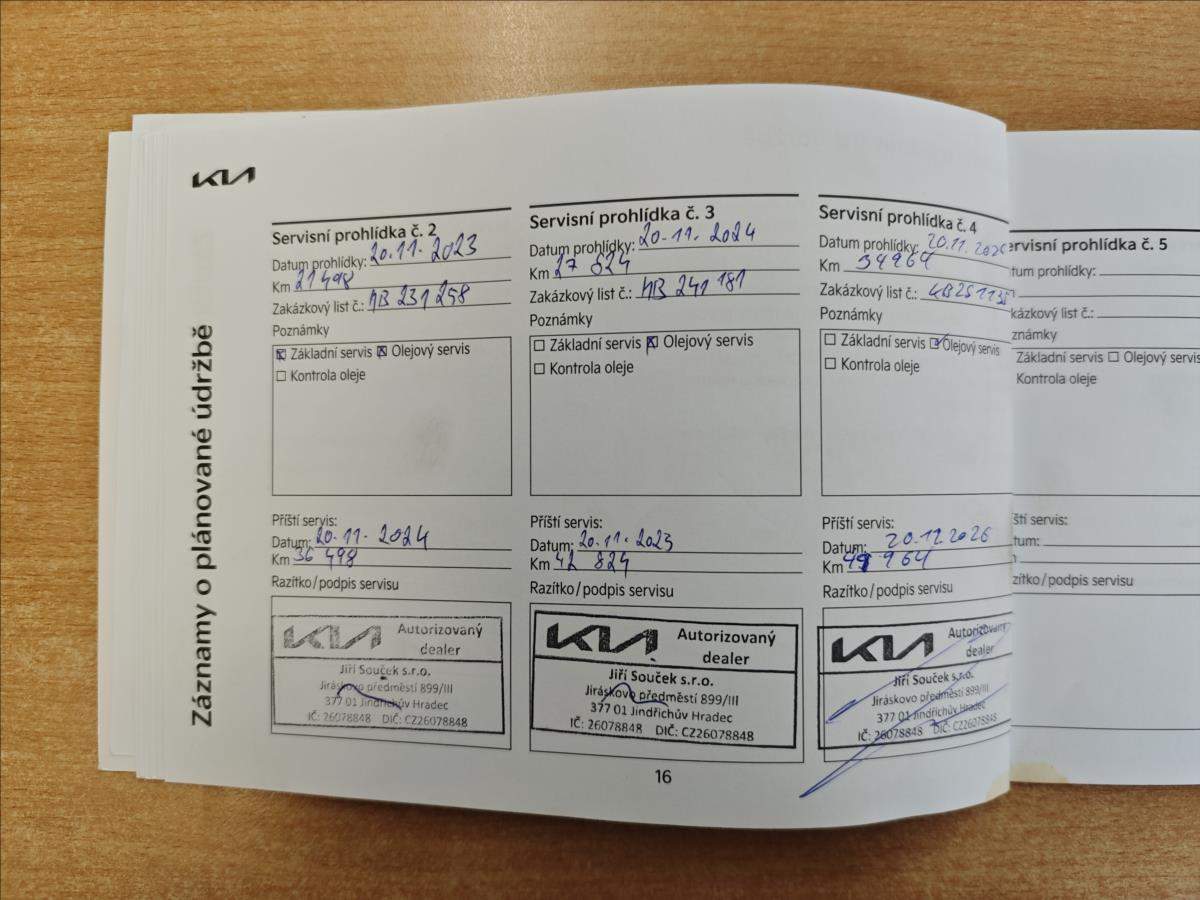 KIA
Záznamy o plánované údržbě
Servisní prohlídka č. 2
Datum prohlídky: 20.11.2023
Km 21 498
Zakázkový list č.: HB 231 258
Poznámky
Základní servis Olejový servis
Kontrola oleje
Příští servis:
Datum: 20.11.2024
Km 36 498
Razítko/podpis servisu
KIA Autorizovaný
dealer
Jiří Souček s.r.o.
Jiráskovo předměstí 899/III
377 01 Jindřichův Hradec
IČ: 26078848 DIČ: CZ26078848
Servisní prohlídka č. 3
Datum prohlídky: 20.11.2024
Km 27 824
Zakázkový list č.: HB 241 181
Poznámky
Základní servis Olejový servis
Kontrola oleje
Příští servis:
Datum: 20.11.2023
Km 42 824
Razítko/podpis servisu
KIA Autorizovaný
dealer
Jiří Souček s.r.o.
Jiráskovo předměstí 899/III
377 01 Jindřichův Hradec
IČ: 26078848 DIČ: CZ26078848
Servisní prohlídka č. 4
Datum prohlídky: 20.11.
Km 34964
Zakázkový list č.:
Poznámky
Základní servis Olejový servis
Kontrola oleje
Příští servis:
Datum: 20.11.2026
Km 49 964
Razítko/podpis servisu
KIA Autorizovaný
dealer
Jiří Souček s.r.o.
Jiráskovo předměstí 899/III
377 01 Jindřichův Hradec
IČ: 26078848 DIČ: CZ26078848
ervisní prohlídka č. 5
tum prohlídky:
kázkový list č.:
známky
Základní servis Olejový servis
Kontrola oleje
ští servis:
tum:
zítko/podpis servisu
16